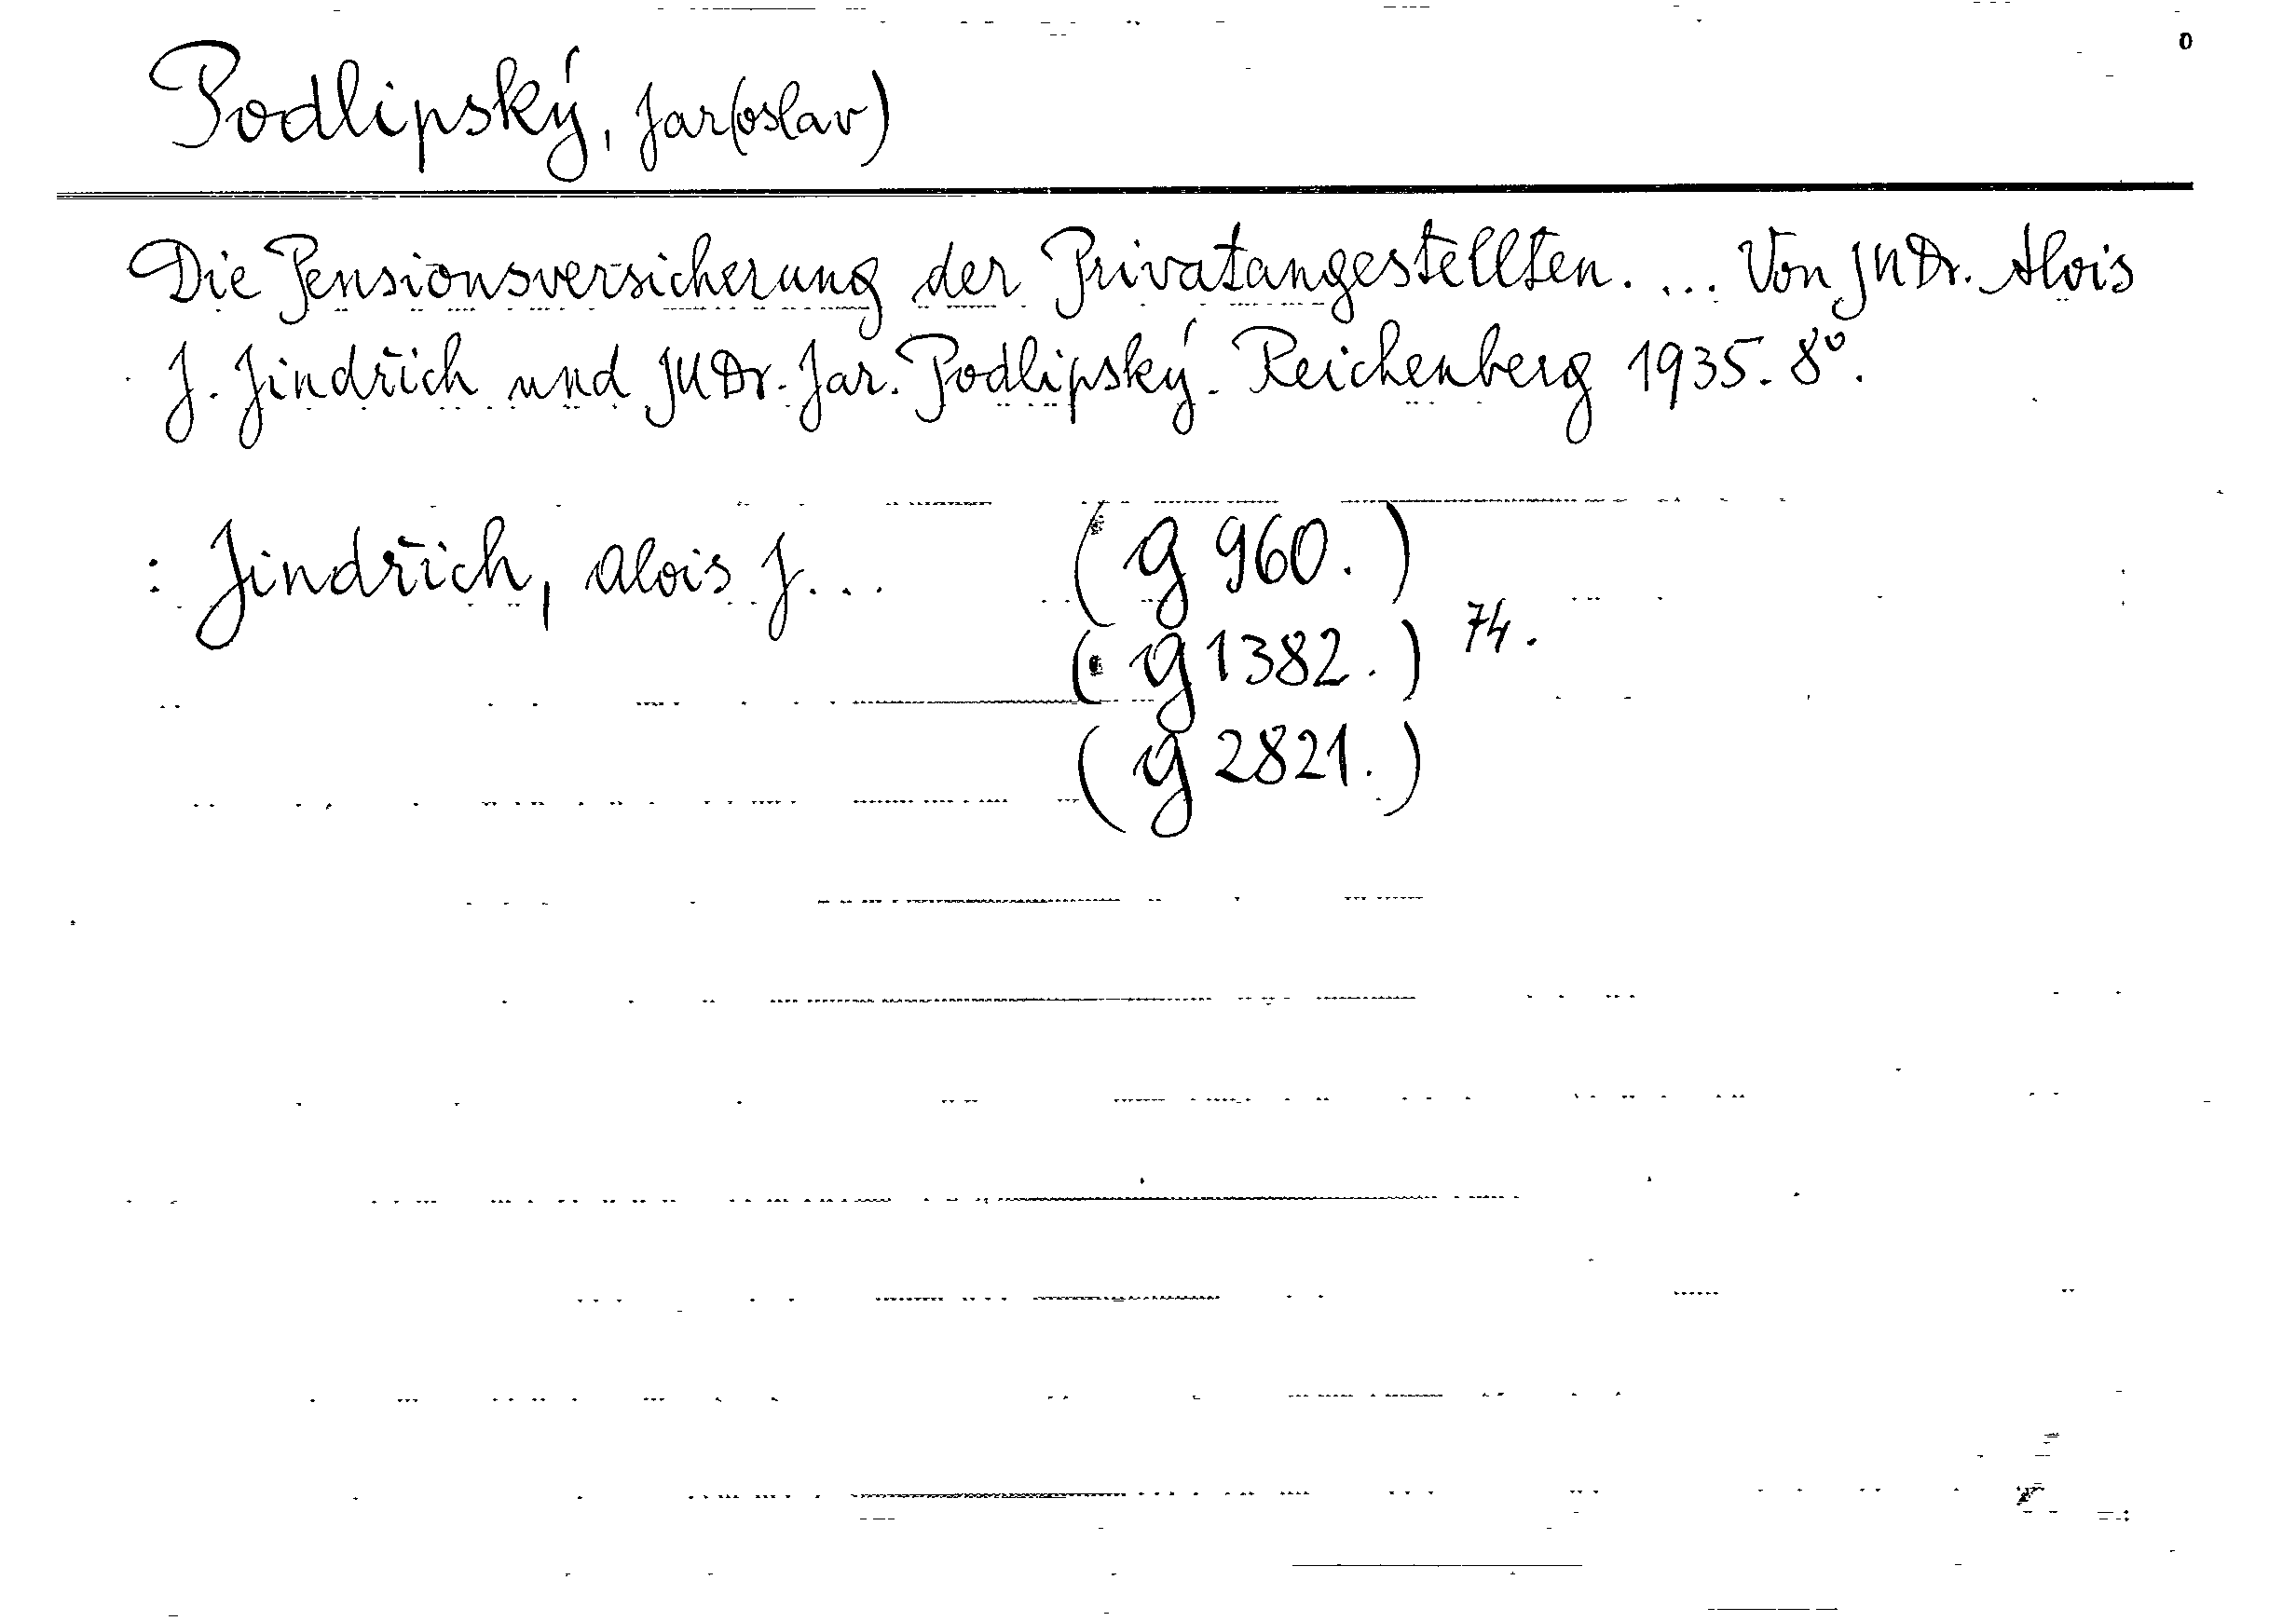 Podlipský, Jar(oslav)
Die Pensionsversicherung der Privatangestellten. ... Von JUDr. Alois
J. Jindřich und JUDr. Jar. Podlipský. Reichenberg 1935. 8°.
: Jindřich, Alois J... (g 960.)
(g 1382.) 74.
(g 2821.)